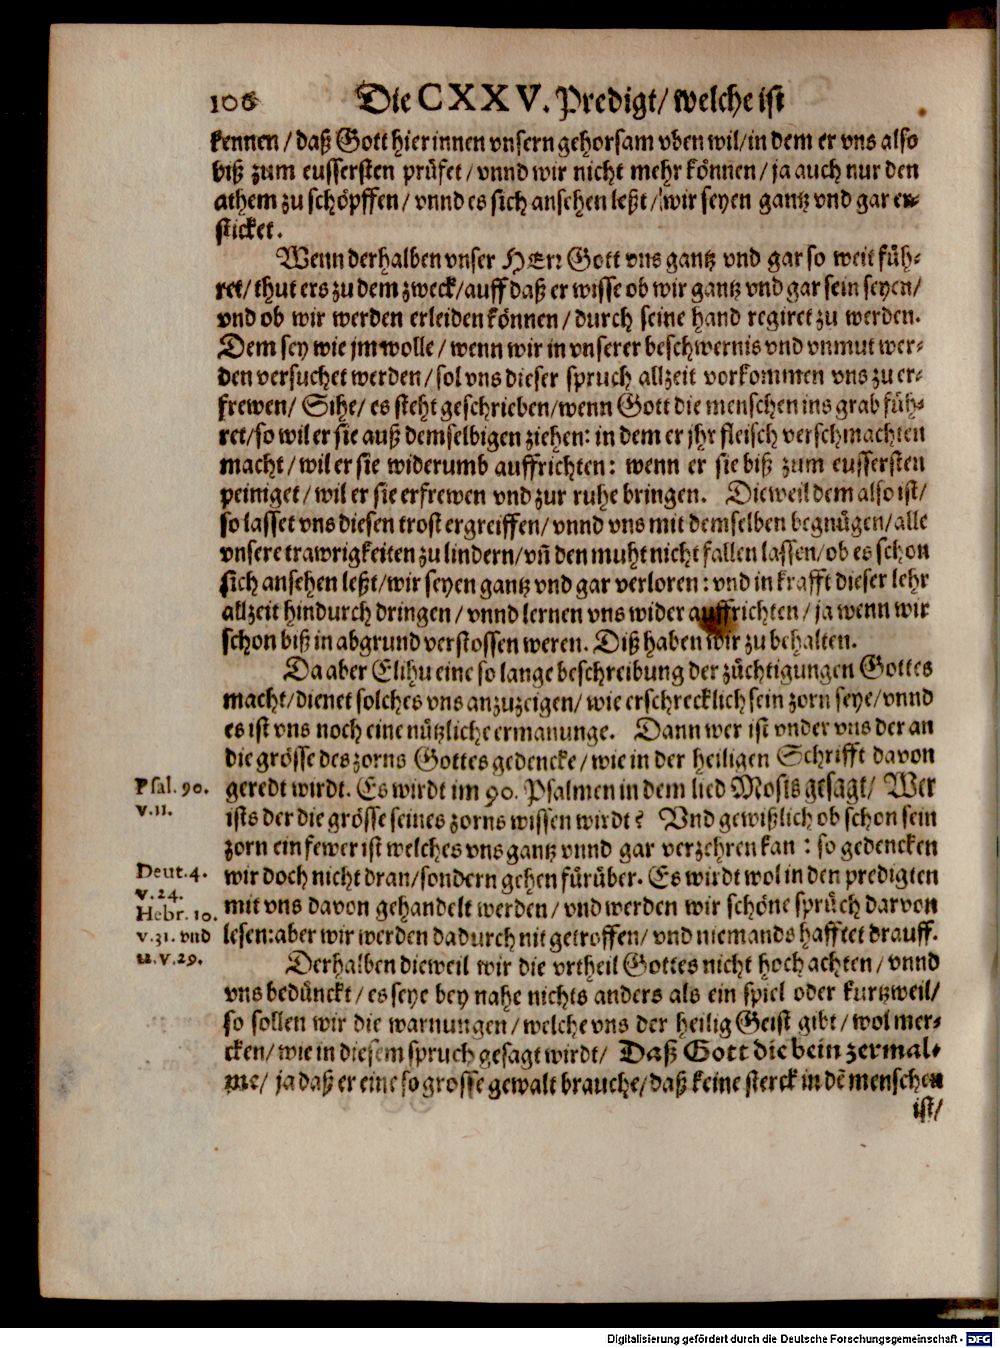 106 Die CXXV. Predigt/ welche ist
kennen/ daß Gott hierinnen vnsern gehorsam vben wil/ in dem er vns also
biß zum eussersten prüfet/ vnnd wir nicht mehr können/ ja auch nur den
athem zu schöpffen/ vnnd es sich ansehen leßt/ wir seyen gantz vnd gar er-
sticket.
Wenn derhalben vnser HErr Gott vns gantz vnd gar so weit füh-
ret/ thut ers zu dem zweck/ auff daß er wisse ob wir gantz vnd gar sein seyen/
vnd ob wir werden erleiden können/ durch seine hand regiret zu werden.
Dem sey wie jm wolle/ wenn wir in vnserer beschwernis vnd vnmut wer-
den versuchet werden/ sol vns dieser spruch allzeit vorkommen vns zu er-
frewen/ Sihe/ es steht geschrieben/ wenn Gott die menschen ins grab füh-
ret/ so wil er sie auß demselbigen ziehen: in dem er jhr fleisch verschmachten
macht/ wil er sie widerumb auffrichten: wenn er sie biß zum eussersten
peiniget/ wil er sie erfrewen vnd zur ruhe bringen. Dieweil dem also ist/
so lasset vns diesen trost ergreiffen/ vnnd vns mit demselben begnügen/ alle
vnsere trawrigkeiten zu lindern/ vñ den muht nicht fallen lassen/ ob es schon
sich ansehen leßt/ wir seyen gantz vnd gar verloren: vnd in krafft dieser lehr
allzeit hindurch dringen/ vnnd lernen vns wider auffrichten/ ja wenn wir
schon biß in abgrund verstossen weren. Diß haben wir zu behalten.
Da aber Elihu eine so lange beschreibung der züchtigungen Gottes
macht/ dienet solches vns anzuzeigen/ wie erschrecklich sein zorn seye/ vnnd
es ist vns noch eine nützliche ermanunge. Dann wer ist vnder vns der an
die grösse des zorns Gottes gedencke/ wie in der heiligen Schrifft davon
Psal. 90.
v. 11.
geredt wirdt. Es wirdt im 90. Psalmen in dem lied Mosis gesagt/ Wer
ists der die grösse seines zorns wissen wirdt? Vnd gewißlich ob schon sein
zorn ein fewer ist welches vns gantz vnnd gar verzehren kan: so gedencken
Deut. 4.
v. 24.
Hebr. 10.
v. 31. vnd
12. v. 29.
wir doch nicht dran/ sondern gehen fürüber. Es wirdt wol in den predigten
mit vns davon gehandelt werden/ vnd werden wir schöne sprüch darvon
lesen: aber wir werden dadurch nit getroffen/ vnd niemands hafftet drauff.
Derhalben dieweil wir die vrtheil Gottes nicht hoch achten/ vnnd
vns bedünckt/ es seye bey nahe nichts anders als ein spiel oder kurtzweil/
so sollen wir die warnungen/ welche vns der heilig Geist gibt/ wol mer-
cken/ wie in diesem spruch gesagt wirdt/ Daß Gott die bein zermal-
me/ ja daß er eine so grosse gewalt brauche/ daß keine sterck in dẽ menschen
ist/
Digitalisierung gefördert durch die Deutsche Forschungsgemeinschaft - DFG